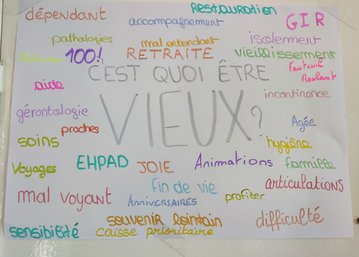 dépendant
Restauration
accompagnement
GIR
pathologies
mal entendant
isolement
100!
RETRAITE
vieillissement
C'EST QUOI ÊTRE
Fauteuil
Roulant
aide
incontinence
gérontologie
VIEUX?
proches
Agée
soins
hygiène
Voyages
EHPAD
JOIE
Animations
famille
mal voyant
fin de vie
articulations
ANNIVERSAIRES
profiter
souvenir lointain
difficulté
sensibilité
caisse prioritaire